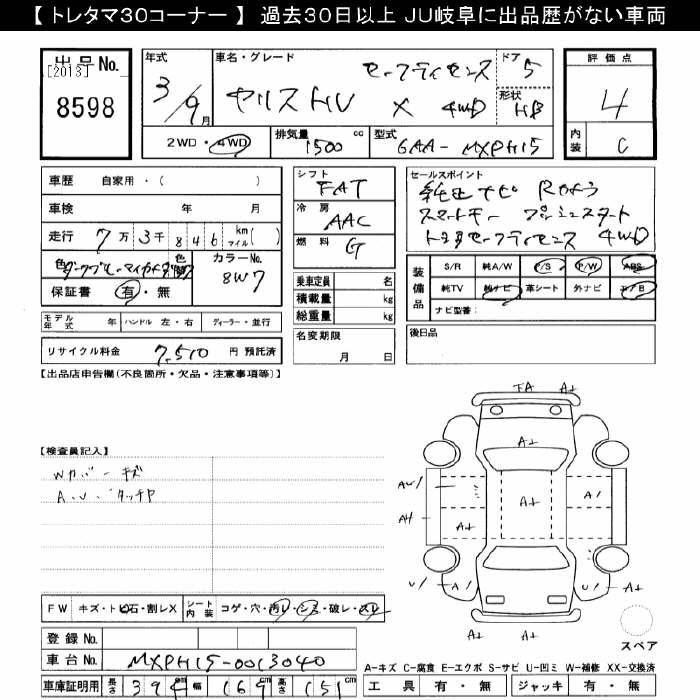 【 トレタマ30コーナー 】 過去30日以上 JU岐阜に出品歴がない車両
出品No.
[2013]
8598
年式
3/9月
車名・グレード
セーフティセンス
ヤリスHV X 4WD
ドア
5
形状
HB
2WD・4WD
排気量
1500 cc
型式
6AA-MXPH15
評価点
4
内装
C
車歴 自家用・( )
車検 年 月
走行 7万3千846 km マイル( )
色
色替
カラーNo.
8W7
保証書 有・無
モデル年式 年 ハンドル 左・右 ディーラー・並行
リサイクル料金 7,510 円 預託済
シフト
FAT
冷房
AAC
燃料
G
乗車定員 名
積載量 kg
総重量 kg
名変期限
月 日
セールスポイント
純正ナビ Rカメラ
スマートキー プッシュスタート
トヨタセーフティセンス 4WD
装備品
S/R 純A/W P/S P/W ABS
純TV 純ナビ 革シート 外ナビ A/B
ナビ型番:
後日品
【出品店申告欄(不良箇所・欠品・注意事項等)】
【検査員記入】
Wカバーキズ
A・U・タッチヤ
FA A+
A+
AU/ A+ A/
AH A+ A+
U/ A/ U/ A/
A+
A+ A+
スペア
FW キズ・トビ石・割レX
シート内装 コゲ・穴・汚レ・シミ・破レ・スレ
登録No.
車台No. MXPH15-0013040
車庫証明用 長さ 394cm 幅 169cm 高さ 151cm
A−キズ C−腐食 E−エクボ S−サビ U−凹ミ W−補修 XX−交換済
工具 有・無 ジャッキ 有・無